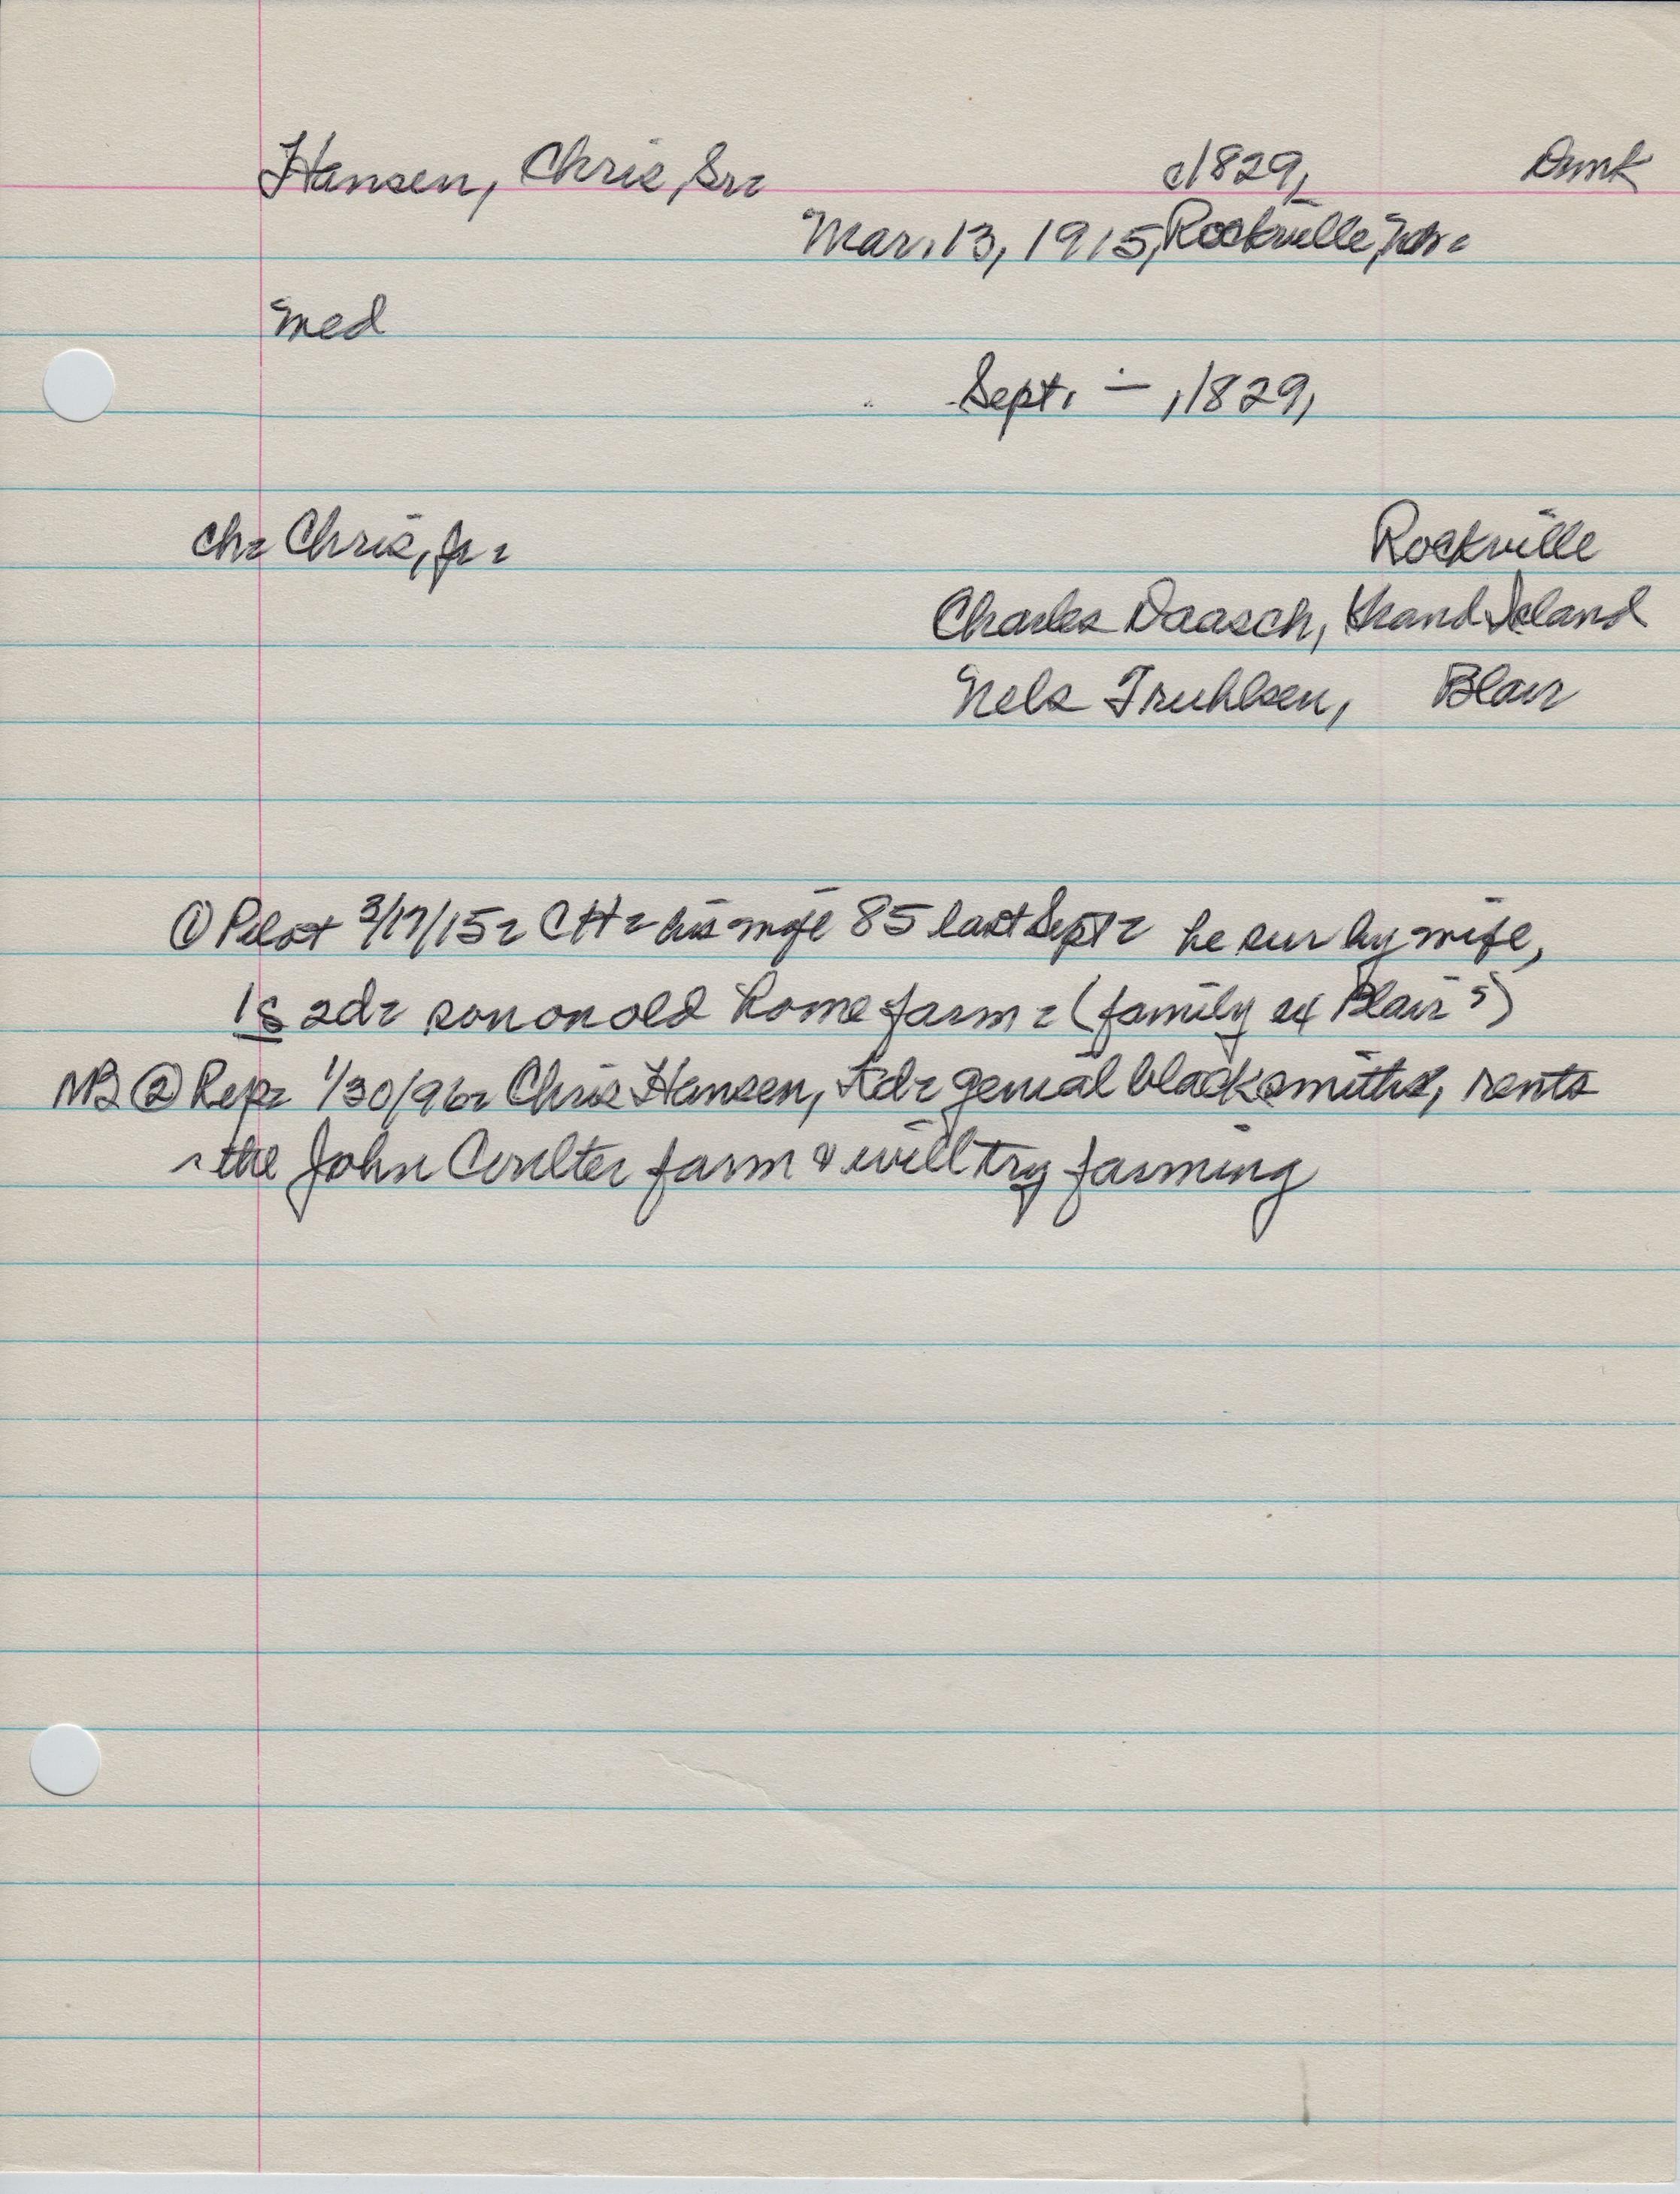 Hansen, Chris, Sr- c1829, Dmk
Mar. 13, 1915, Rockville, Nbr-
med
Sept. —, 1829,
ch- Chris, Jr- Rockville
Charles Daasch, Grand Island
Nels Truhlsen, Blair
① Pilot 3/17/15- CH- his wife 85 last Sept- he sur by wife,
1s 2d- son on old home farm- (family ex Blair)
NB ② Rep- 1/30/96- Chris Hansen, genial blacksmith, rents
the John Coulter farm & will try farming